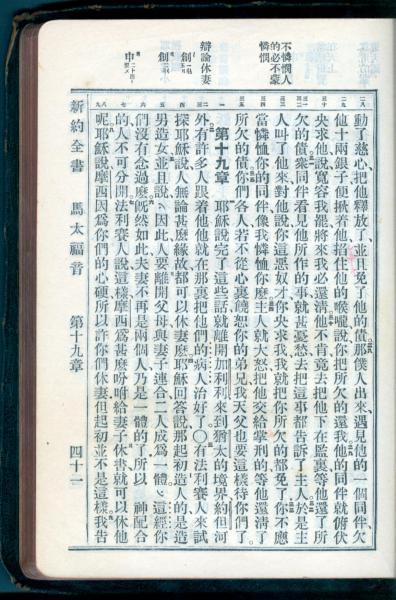 不憐憫人
的必不蒙
憐憫
辯論休妻
動了慈心把他釋放了並且免了他的債那僕人出來遇見他的一個同伴欠
他十兩銀子便揪著他掐住他的喉嚨說你把所欠的還我他的同伴就俯伏
央求他說寬容我罷將來我必還清他不肯竟去把他下在監裏等他還了所
欠的債衆同伴看見他所作的事就甚憂愁去把這事都告訴了主人於是主
人叫了他來對他說你這惡奴才你央求我我就把你所欠的都免了你不應
當憐恤你的同伴像我憐恤你麽主人就大怒把他交給掌刑的等他還清了
所欠的債你們各人若不從心裏饒恕你的弟兄我天父也要這樣待你們了
第十九章 耶穌說完了這些話就離開加利利來到猶太的境界約但河
外有許多人跟着他他就在那裏把他們的病人治好了〇有法利賽人來試
探耶穌說人無論甚麽緣故都可以休妻麽耶穌回答說那起初造人的是造
男造女並且說因此人要離開父母與妻子連合二人成爲一體這經你
們沒有念過麽旣然如此夫妻不再是兩個人乃是一體的了所以 神配合
的人不可分開法利賽人說這樣摩西爲甚麽吩咐給妻子休書就可以休他
呢耶穌說摩西因爲你們的心硬所以許你們休妻但起初並不是這樣我告
新約全書 馬太福音 第十九章 四十一